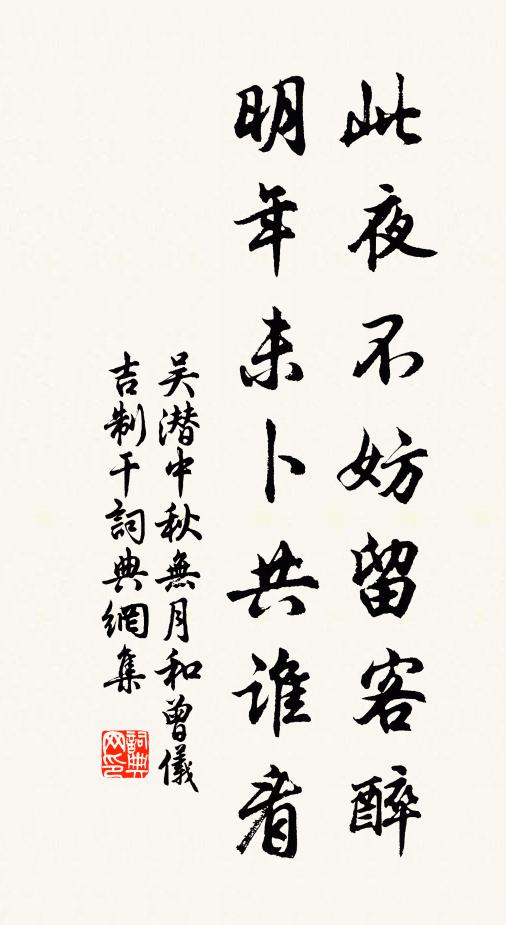 此夜不妨留客醉
明年未卜共谁看
吴潜中秋無月和曾儀
吉制干詞典網集
詞典
网印